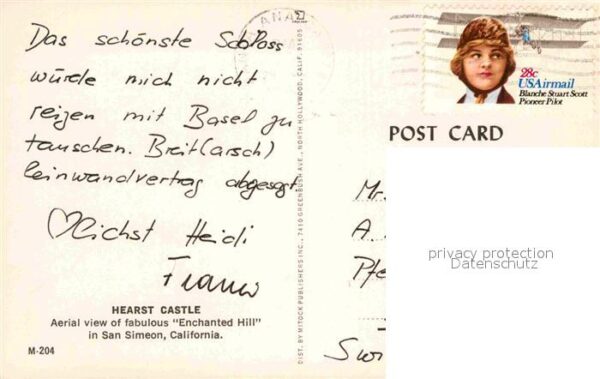 Das schönste Schloss
würde mich nicht
reizen mit Basel zu
tauschen. Breit(arsch)
leinwandvertrag abgesagt.
♡lichst Heidi
HEARST CASTLE
Aerial view of fabulous "Enchanted Hill"
in San Simeon, California.
M-204
DIST. BY MITOCK PUBLISHERS INC., 7410 GREENBUSH AVE., NORTH HOLLYWOOD, CALIF. 91605
28c
USAirmail
Blanche Stuart Scott
Pioneer Pilot
POST CARD
Mr.
A.
Pfe
privacy protection
Datenschutz